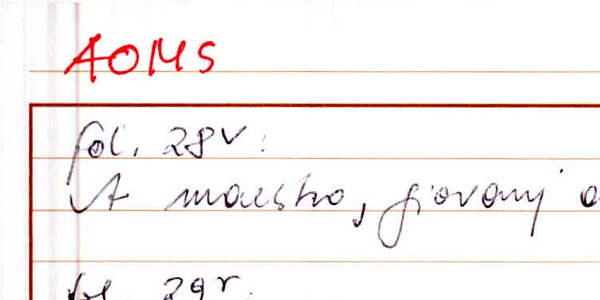 AOMS
fol. 28v:
A maestro, giovanj
fol. 29r.